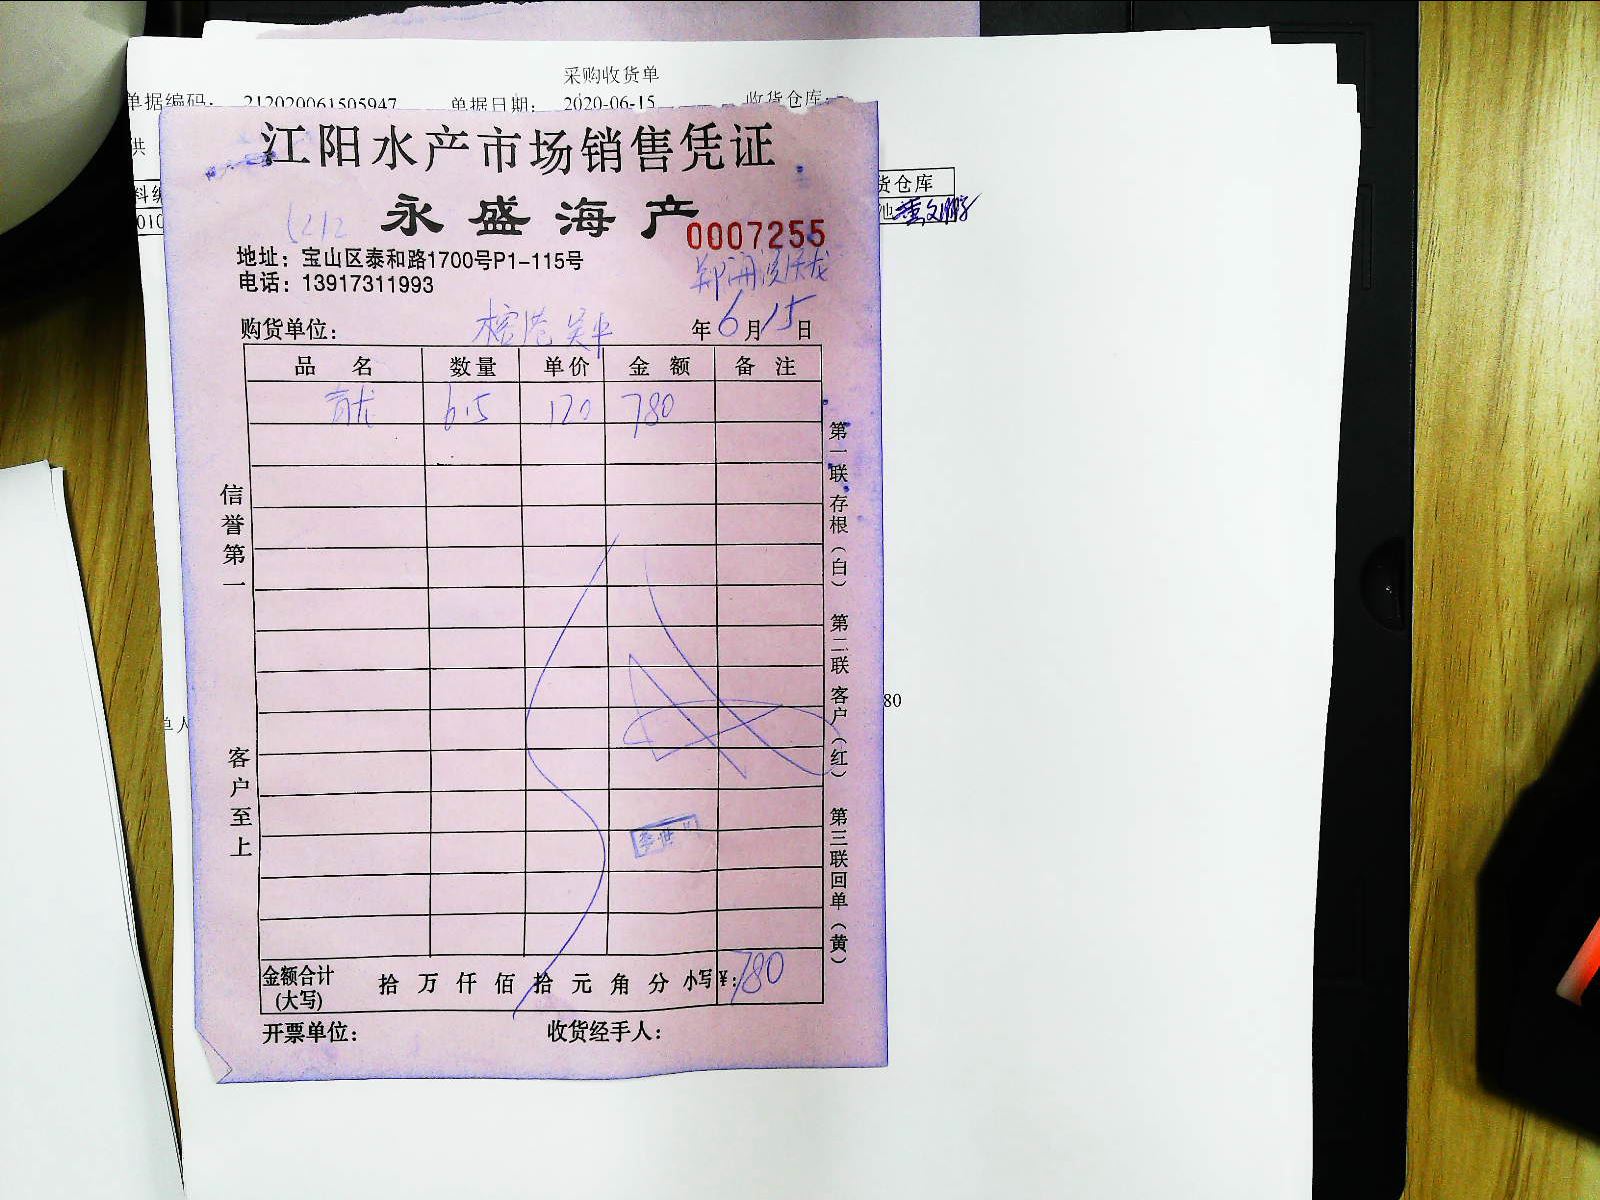 采购收货单
单据编码: 212020061505947 单据日期: 2020-06-15 收货仓库:
供
料编
010
货仓库
江阳水产市场销售凭证
永盛海产
0007255
地址：宝山区泰和路1700号P1-115号
电话：13917311993
购货单位： 年6月15日
品名 数量 单价 金额 备注
青龙 6.5 120 780
信誉第一
客户至上
第一联 存根（白） 第二联 客户（红） 第三联 回单（黄）
80
单人
金额合计(大写) 拾 万 仟 佰 拾 元 角 分 小写¥: 780
开票单位： 收货经手人：